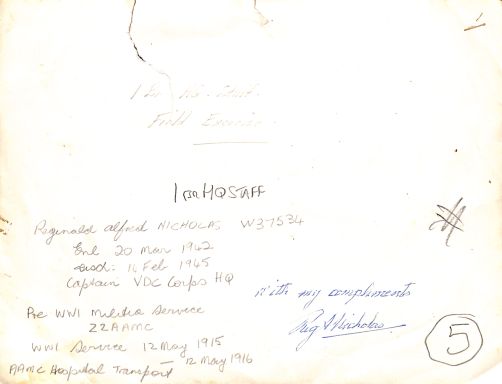 1
1 Bn HQ. Staff.
Field Exercise.
1 BN HQ STAFF
Reginald Alfred NICHOLAS W37534
Enl 20 Mar 1942
Disd: 14 Feb 1945
Captain VDC Corps HQ
With my compliments
Reg A Nicholas
Pre WW1 Militia Service
22AAMC
WW1 Service 12 May 1915
— 12 May 1916
AAMC Hospital Transport
5